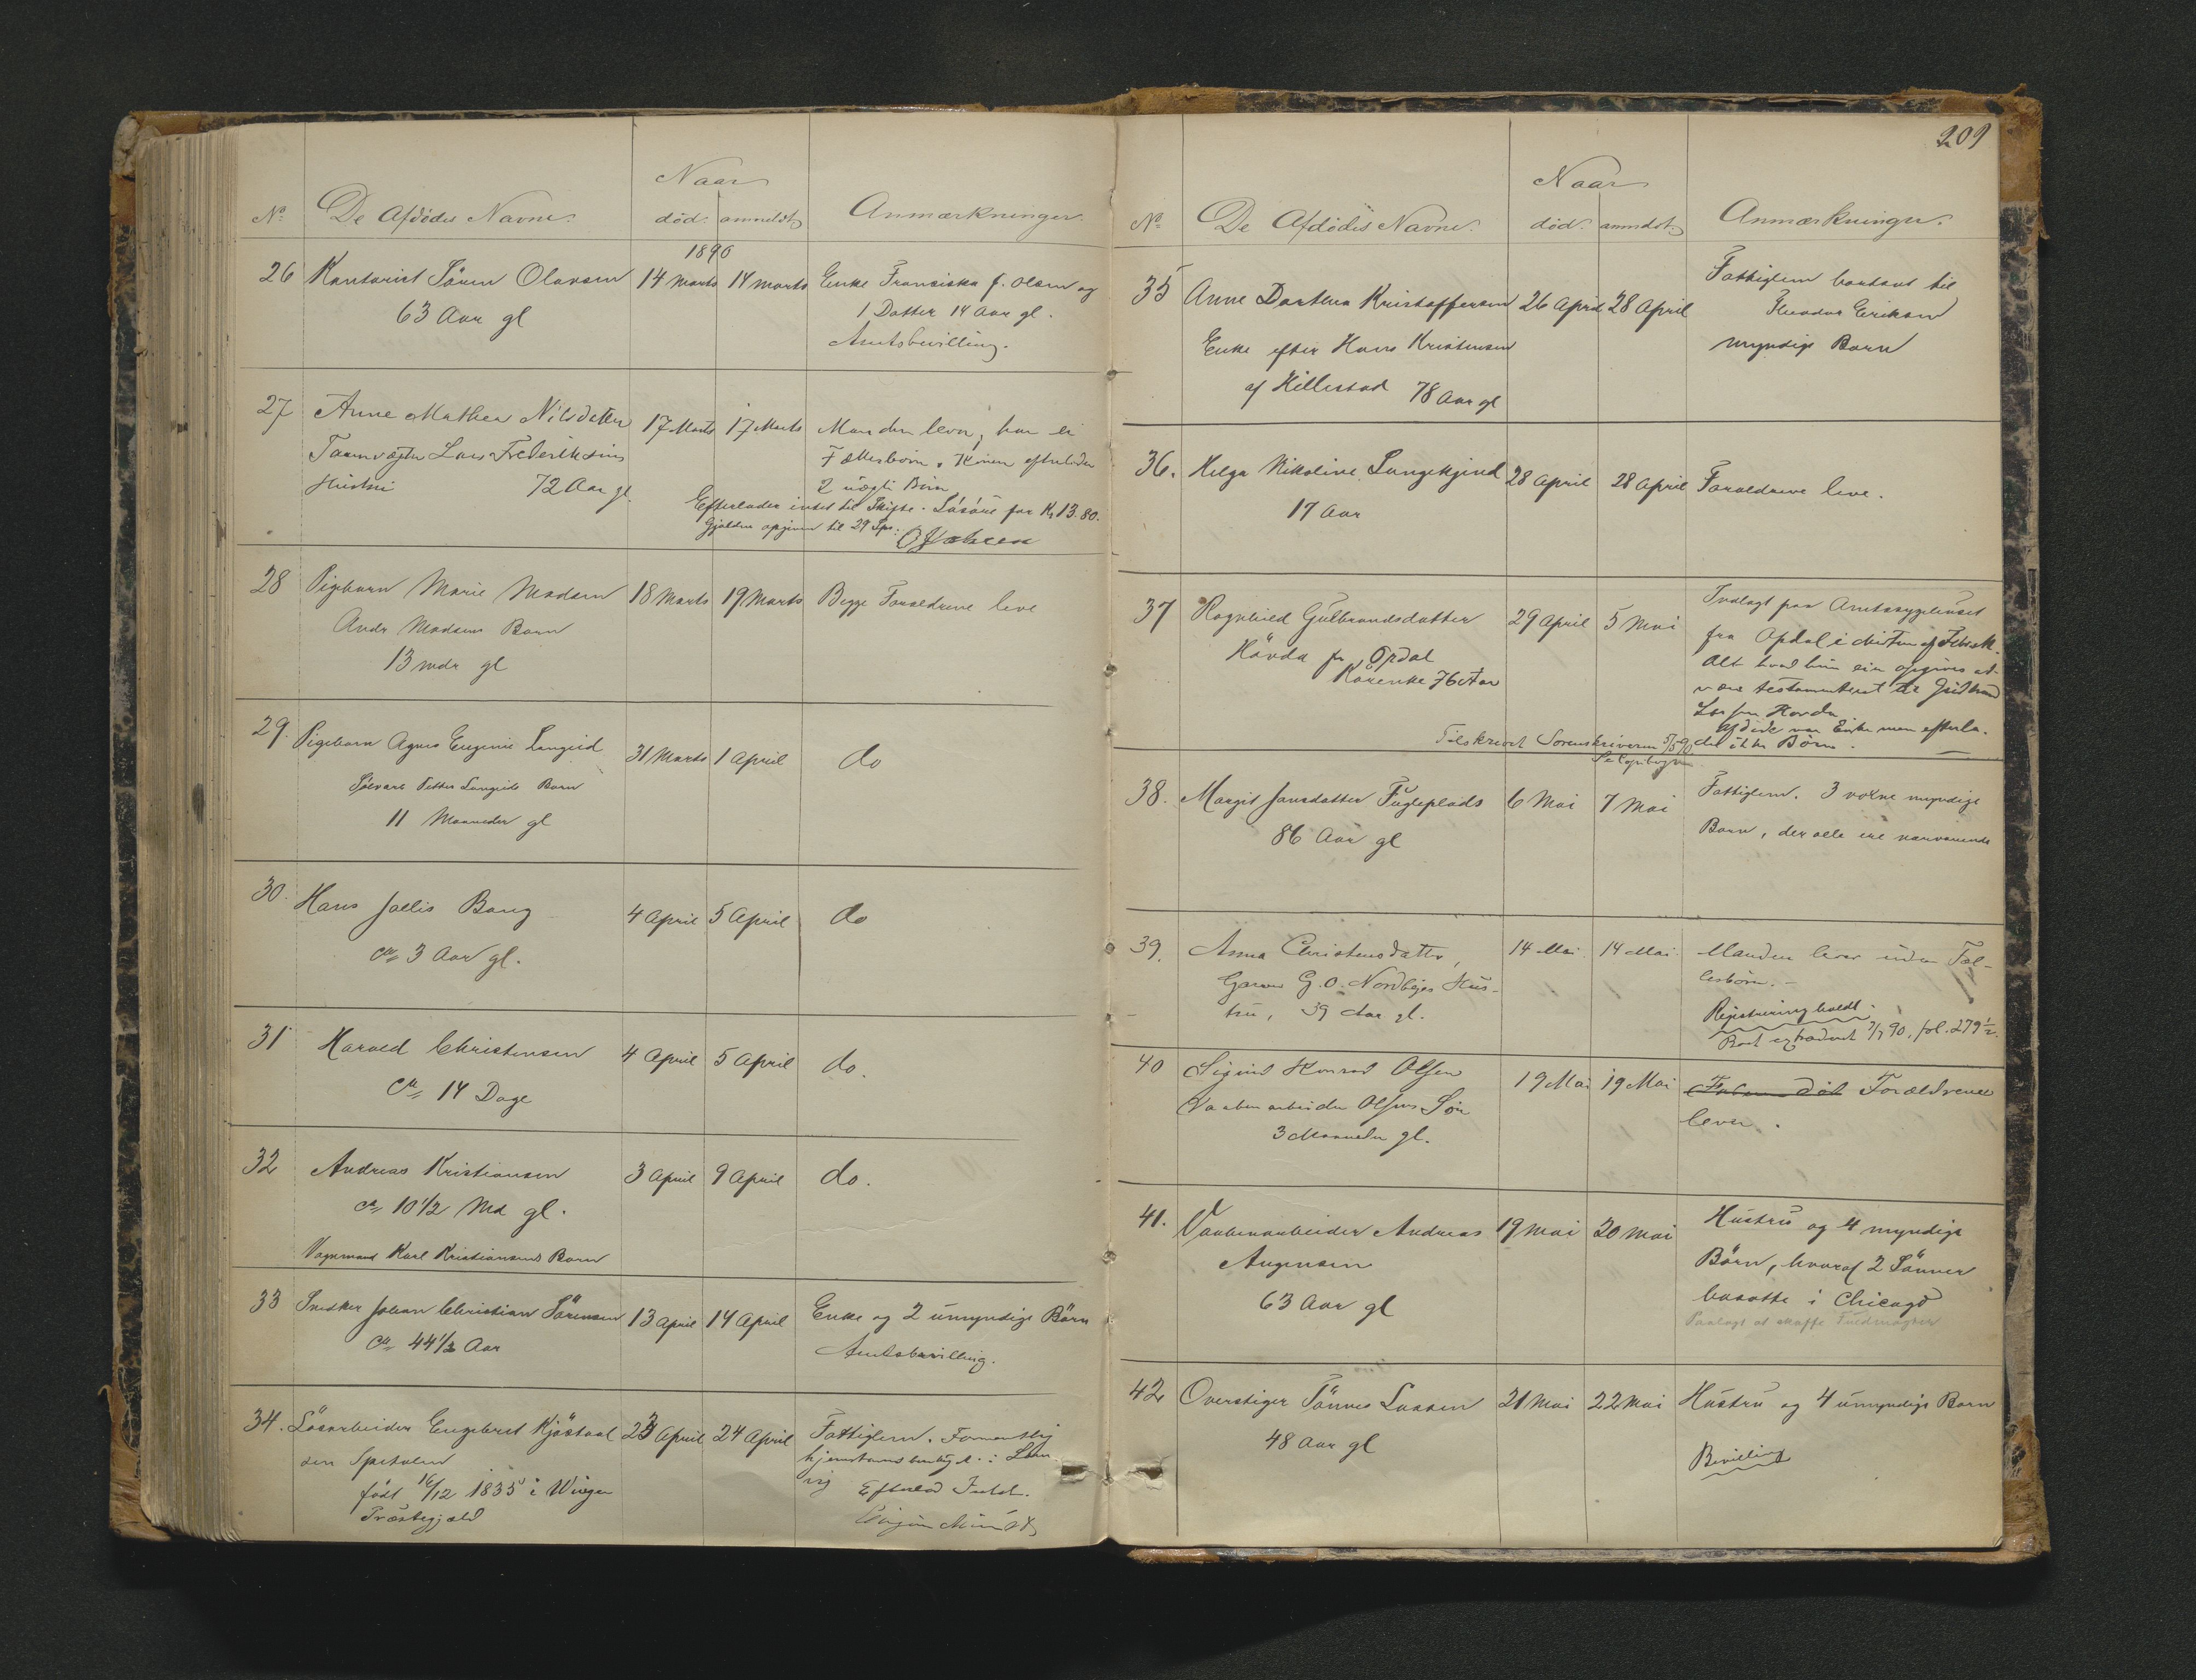 Naar
No De Afdödes Navne. död. anmeldt Anmærkninger.
1890
26 Kontorist Sören Olavsen 14 Marts 14 Marts Enke Franciska f. Olsen og
63 Aar gl 1 Datter 14 Aar gl.
Amtsbevilling.
27 Anne Mathea Nilsdatter 17 Marts 17 Marts Manden lever, har ei
Taarnvægter Lars Frederiksens Fællesbörn. Konen efterlader
Hustru 72 Aar gl. 2 uægte Börn
Efterlader intet til Skifte. Lösöre for Kr 13.80.
Gjælden opgiven til 29 Spd.
28 Pigebarn Marie Madsen 18 Marts 19 Marts Begge Forældrene leve
Andr Madsens Barn
13 mdr gl
29. Pigebarn Agnes Eugenie Langeid 31 Marts 1 April do
Petter Langeids Barn
11 Maaneder gl
30. Hans Jallis Bang 4 April 5 April do
ca 3 Aar gl.
31 Harald Christensen 4 April 5 April do.
ca 14 Dage
32 Andreas Kristiansen 3 April 9 April do.
ca 10 1/2 Md gl.
Vognmand Karl Kristiansens Barn
33 Snedker Johan Christian Sörensen 13 April 14 April Enke og 2 umyndige Börn
ca 44 1/2 Aar Amtsbevilling.
34. Lösarbeider Engebret Kjöstad 23 April 24 April Fattiglem. Formentlig
den Spetalen hjemstavnsberettiget i
född 16/12 1835 i Winger
Præstegjæld
209
Naar
No De Afdödes Navne. död. anmeldt Anmærkninger.
Fattiglem bortsat til
35 Anne Dorthea Kristoffersen 26 April 28 April Theodor Eriksen
Enke efter Hans Kristensen myndige Barn
af Hillestad 78 Aar gl
36. Helga Nikoline Langekjend 28 April 28 April Forældrene leve.
17 Aar
37 Ragnhild Gulbrandsdatter 29 April 5 Mai Indlagt paa Amtssygehuset
Hövda fra Opdal fra Opdal i
Kaarenke 76 Aar Alt hvad hun eier opgives at
være testamenteret til Gudbrand
Larsen Hovda
Afdöde var Enke men efterla-
Tilskrevet Sorenskriveren 5/5 90 der ikke Börn.
38. Margit Jansdatter Fugleplads 6 Mai 7 Mai Fattiglem. 3 voxne myndige
86 Aar gl Barn, der alle ere nærværende
39. Anna Christensdatter, 14 Mai 14 Mai Manden lever uden Fæl-
Garver G. O. Nordbyes Hus- lesbörn.
tru, 39 Aar gl. Registrering holdt.
Boet extraderet 7/7 90, fol. 279 1/2.
40 Sigurd Konrad Olsen 19 Mai 19 Mai Forældrene
Vaabenarbeider Olsens Sön lever.
3 Maaneder gl.
41. Vaabenarbeider Andreas 19 Mai 20 Mai Hustru og 4 myndige
Augensen Börn, hvoraf 2 Sönner
63 Aar gl bosatte i Chicago
Paalagt at skaffe Fuldmagter
42 Overstiger Tönnes Lassen 21 Mai 22 Mai Hustru og 4 umyndige Barn
48 Aar gl Bevilling